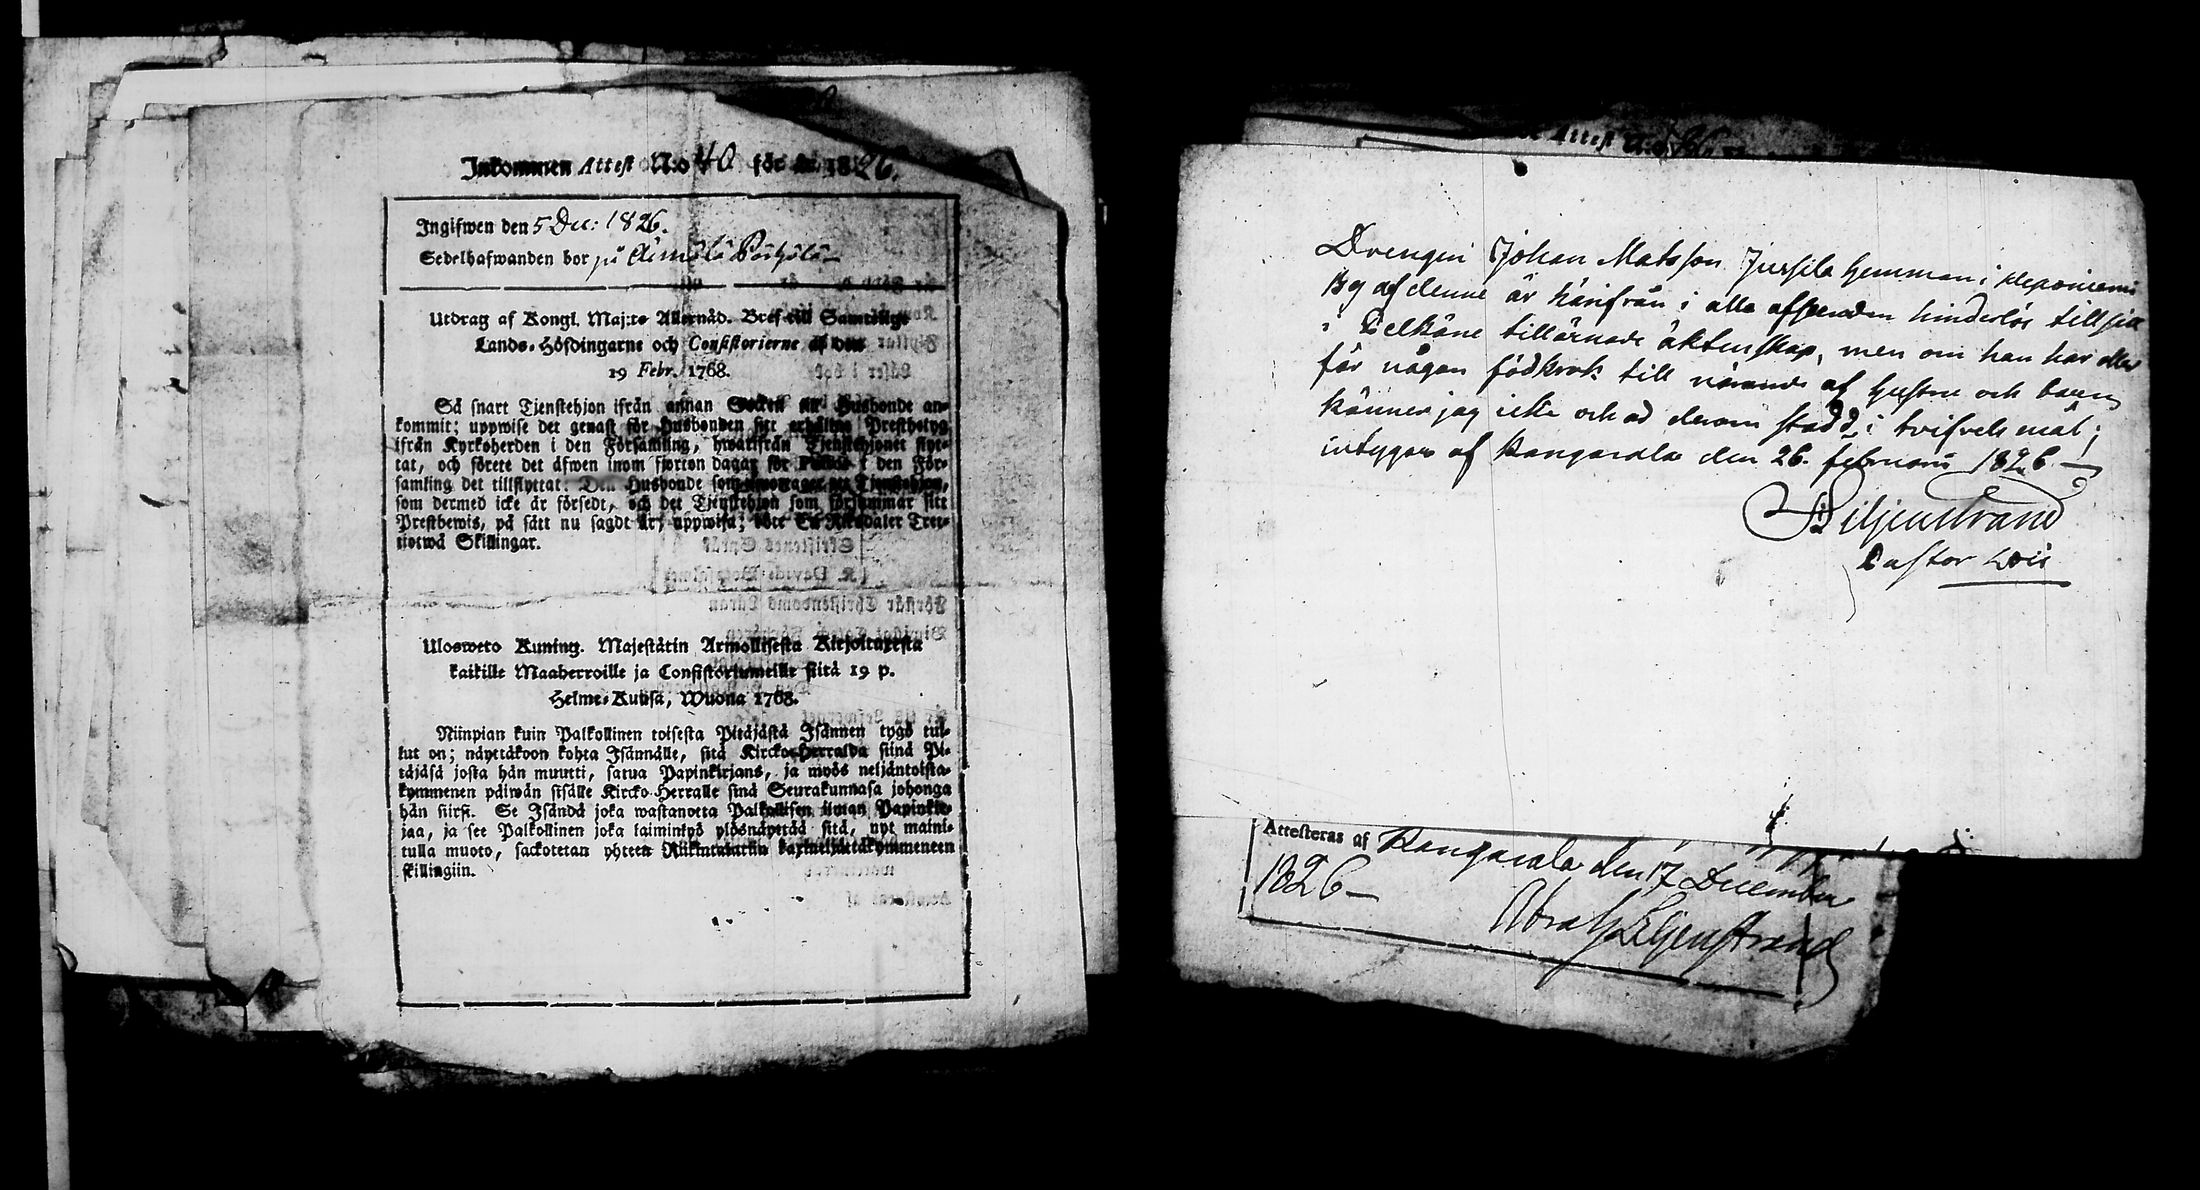 Inkommen Attest N:o 40 för år 1826.
Ingifwen den 5 Dec: 1826.
Sedelhafwanden bor på
Utdrag af Kongl. Maj:ts Allernåd. Bref till Samtelige
Lands-Höfdingarne och Consistorierne af den
19 Febr. 1768.
Så snart Tjenstehjon ifrån annan Socken till Husbonde an-
kommit; uppwise det genast för Husbonden sitt erhållna Prestbetyg
ifrån Kyrkoherden i den Församling, hwarifrån Tjenstehjonet flyt-
tat, och förete det äfwen inom fjorton dagar för i den För-
samling det tillflyttat. Den Husbonde som emottager ett Tjenstehjon,
som dermed icke är försedt, och det Tjenstehjon som försummar sitt
Prestbewis, på sätt nu sagdt är, uppwisa; böte En Riksdaler Tret-
tiotwå Skillingar.
Uloswето Kuning. Majestätin Armollisesta Kirjoituxesta
kaikille Maaherroille ja Consistoriumeille siitä 19 p.
Helme-Kuusa, Wuona 1768.
Niinpian kuin Palkollinen toisesta Pitäjästä Isännen tygö tul-
lut on; näyttäkoon kohta Isännälle, sitä Kircko-Herralda siinä Pi-
täjäsä josta hän muutti, saatua Papinkirjans, ja myös neljäntoista-
kymmenen päiwän sisälle Kircko-Herralle sinä Seurakunnasa johonga
hän siirsi. Se Isändä joka wastanotta Palkollisen ilman Papinkir-
jaa, ja see Palkollinen joka laiminlyö ylösnäyttää sitä, nyt maini-
tulla muoto, sackotetan yhteen Riikintalariin kaxineljättäkymmeneen
skillingiin.
Attest N:o
Drengen Johan Matsson Jussila hemman i
by af denne är härifrån i alla afseenden hinderlös till sitt
i Pelkäne tillärnade äktenskap, men om han har eller
får någon födkrok till närande af hustru och barn
känner jag icke och ad derom stadd i tvifvels mål;
intygar af Kangasala den 26. februarii 1826.
Liljenstrand
Pastor Loci
Attesteras af Kangasala den 17 December
1826 —
Abrah Liljenstrand